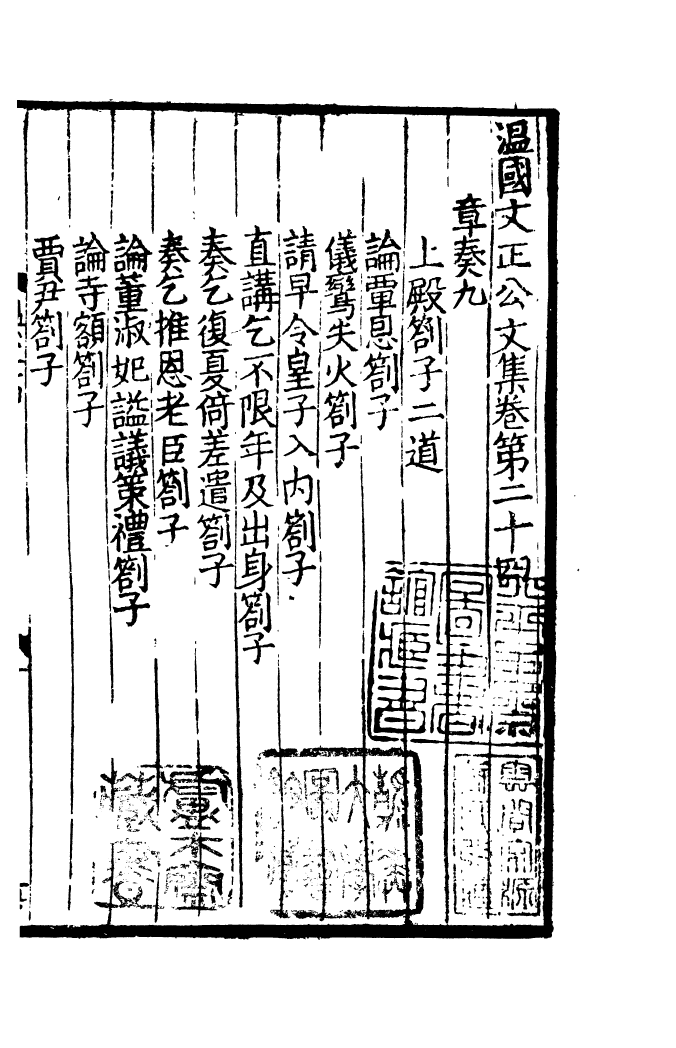 温國文正公文集卷第二十四
章奏九
上殿劄子二道
論覃恩劄子
儀鸞失火劄子
請早令皇子入内劄子
直講乞不限年及出身劄子
奏乞復夏倚差遣劄子
奏乞推恩老臣劄子
論董淑妃謚議策禮劄子
論寺額劄子
賈尹劄子